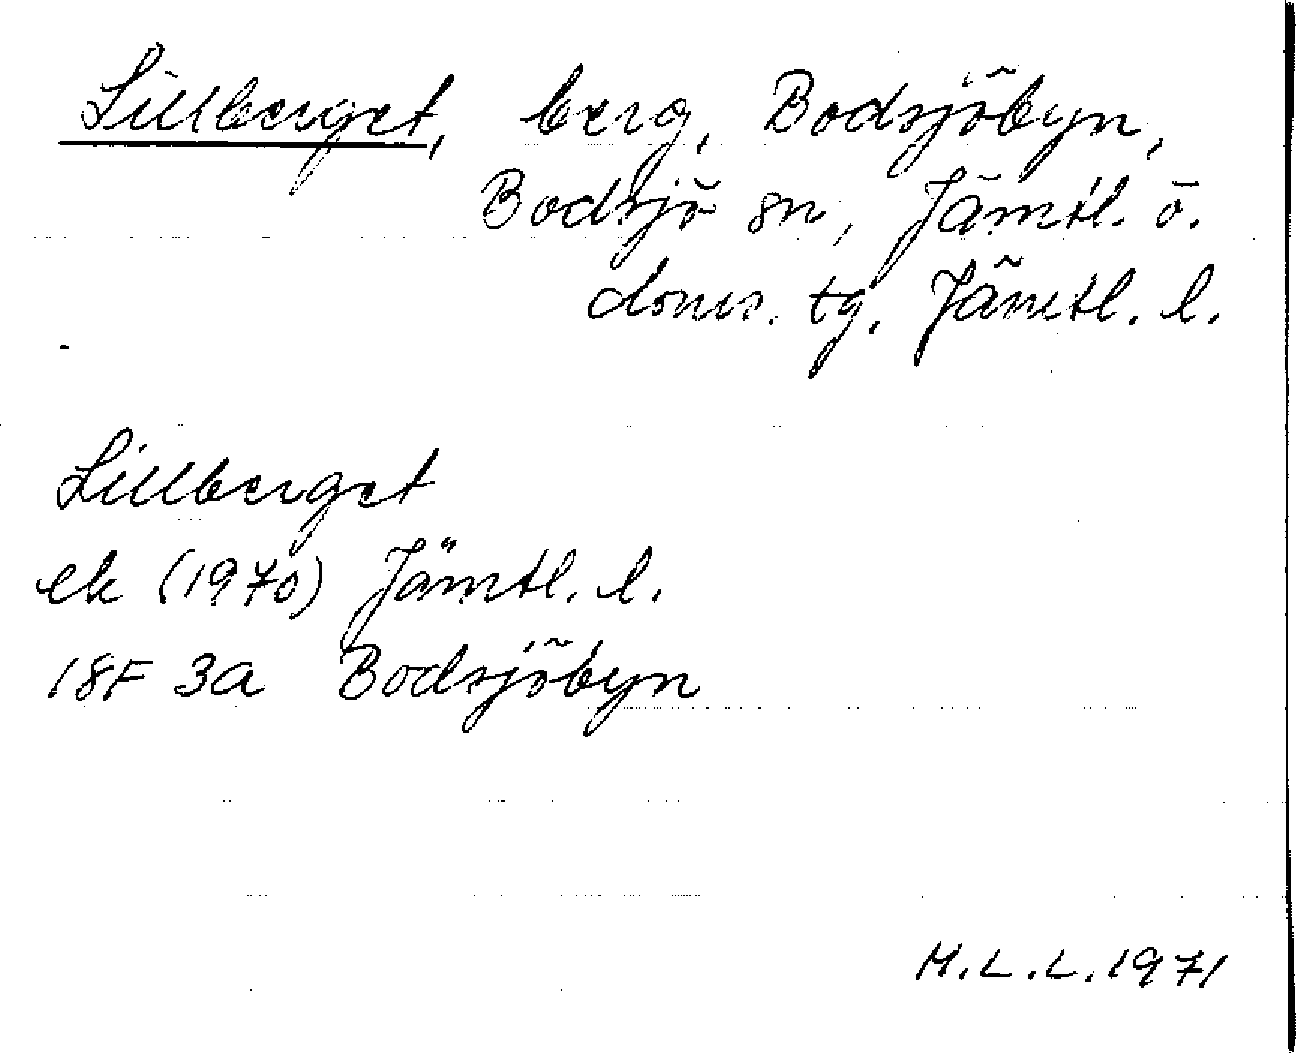 Lillberget, berg, Bodsjöbyn,
Bodsjö sn, Jämtl. ö.
doms. tg. Jämtl. l.
Lillberget
ek (1970) Jämtl. l.
18F 3a Bodsjöbyn
M.L.L. 1971